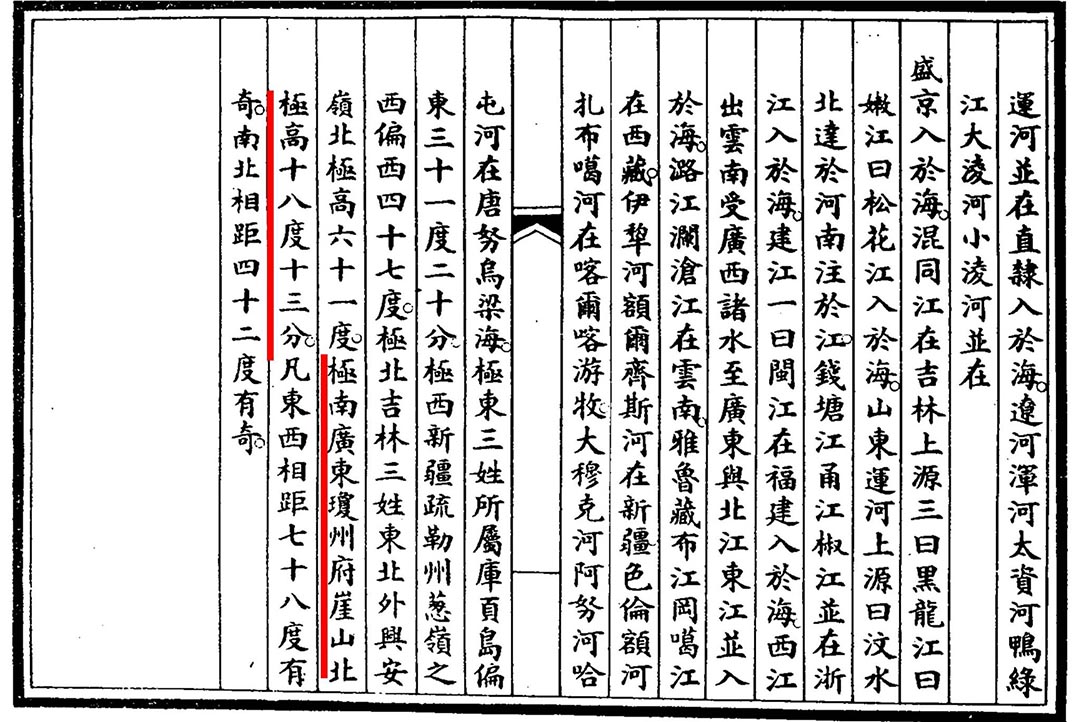 運河並在直隸入於海遼河渾河太資河鴨綠
江大淩河小淩河並在
盛京入於海混同江在吉林上源三曰黑龍江曰
嫩江曰松花江入於海山東運河上源曰汶水
北達於河南注於江錢塘江甬江椒江並在浙
江入於海建江一曰閩江在福建入於海西江
出雲南受廣西諸水至廣東與北江東江並入
於海潞江瀾滄江在雲南雅魯藏布江岡噶江
在西藏伊犂河額爾齊斯河在新疆色倫額河
扎布噶河在喀爾喀游牧大穆克河阿努河哈
屯河在唐努烏梁海極東三姓所屬庫頁島偏
東三十一度二十分極西新疆疏勒州葱嶺之
西偏西四十七度極北吉林三姓東北外興安
嶺北極高六十一度極南廣東瓊州府崖山北
極高十八度十三分凡東西相距七十八度有
奇南北相距四十二度有奇